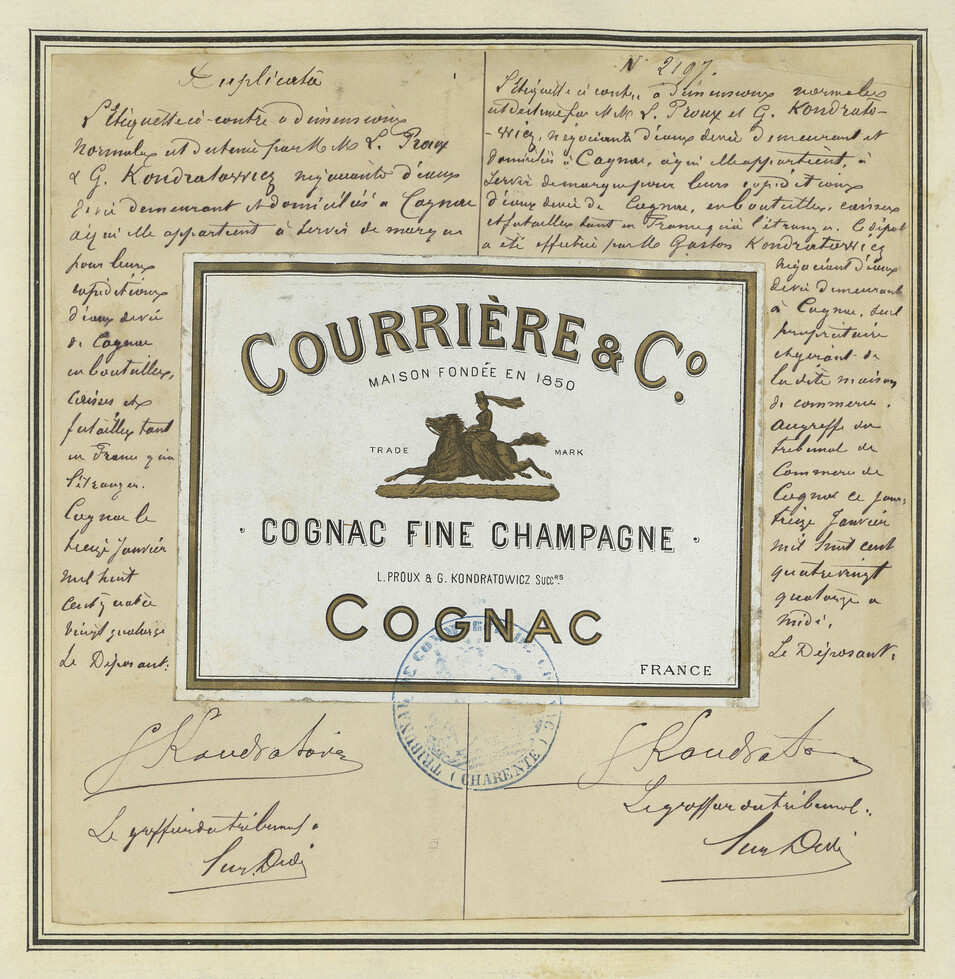 Duplicata
L'étiquette ci-contre a dimensions
normales est destinée par M M L. Proux
& G. Kondratowicz négociants d'eaux
de vie demeurant & domiciliés à Cognac
à qui elle appartient à servir de marque
pour leurs
expéditions
d'eaux de vie
de Cognac
en bouteilles,
caisses et
futailles tant
en France qu'à
l'étranger.
Cognac le
treize Janvier
mil huit
cent quatre
vingt quatorze
Le Déposant.
G Kondratowicz
Le greffier du tribunal.
N° 2197.
L'étiquette ci contre, a dimensions normales
est destinée par M M. L. Proux et G. Kondrato-
-wicz, négociants d'eaux de vie demeurant et
domiciliés à Cognac, à qui elle appartient, à
servir de marque pour leurs expéditions
d'eaux de vie de Cognac, en bouteilles, caisses
et futailles tant en France qu'à l'étranger. Le dépôt
a été effectué par M Gaston Kondratowicz
négociant d'eaux
de vie demeurant
à Cognac, seul
propriétaire
et gérant de
la dite maison
de commerce.
Au greffe du
tribunal de
Commerce de
Cognac ce jour,
treize Janvier
mil huit cent
quatre vingt
quatorze a
midi,
Le Déposant.
G Kondrato
Le greffier du tribunal.
COURRIÈRE & Co.
MAISON FONDÉE EN 1850
TRADE MARK
· COGNAC FINE CHAMPAGNE ·
L. PROUX & G. KONDRATOWICZ SUCCRS
COGNAC
FRANCE
TRIBUNAL DE COMMERCE DE COGNAC
(CHARENTE)